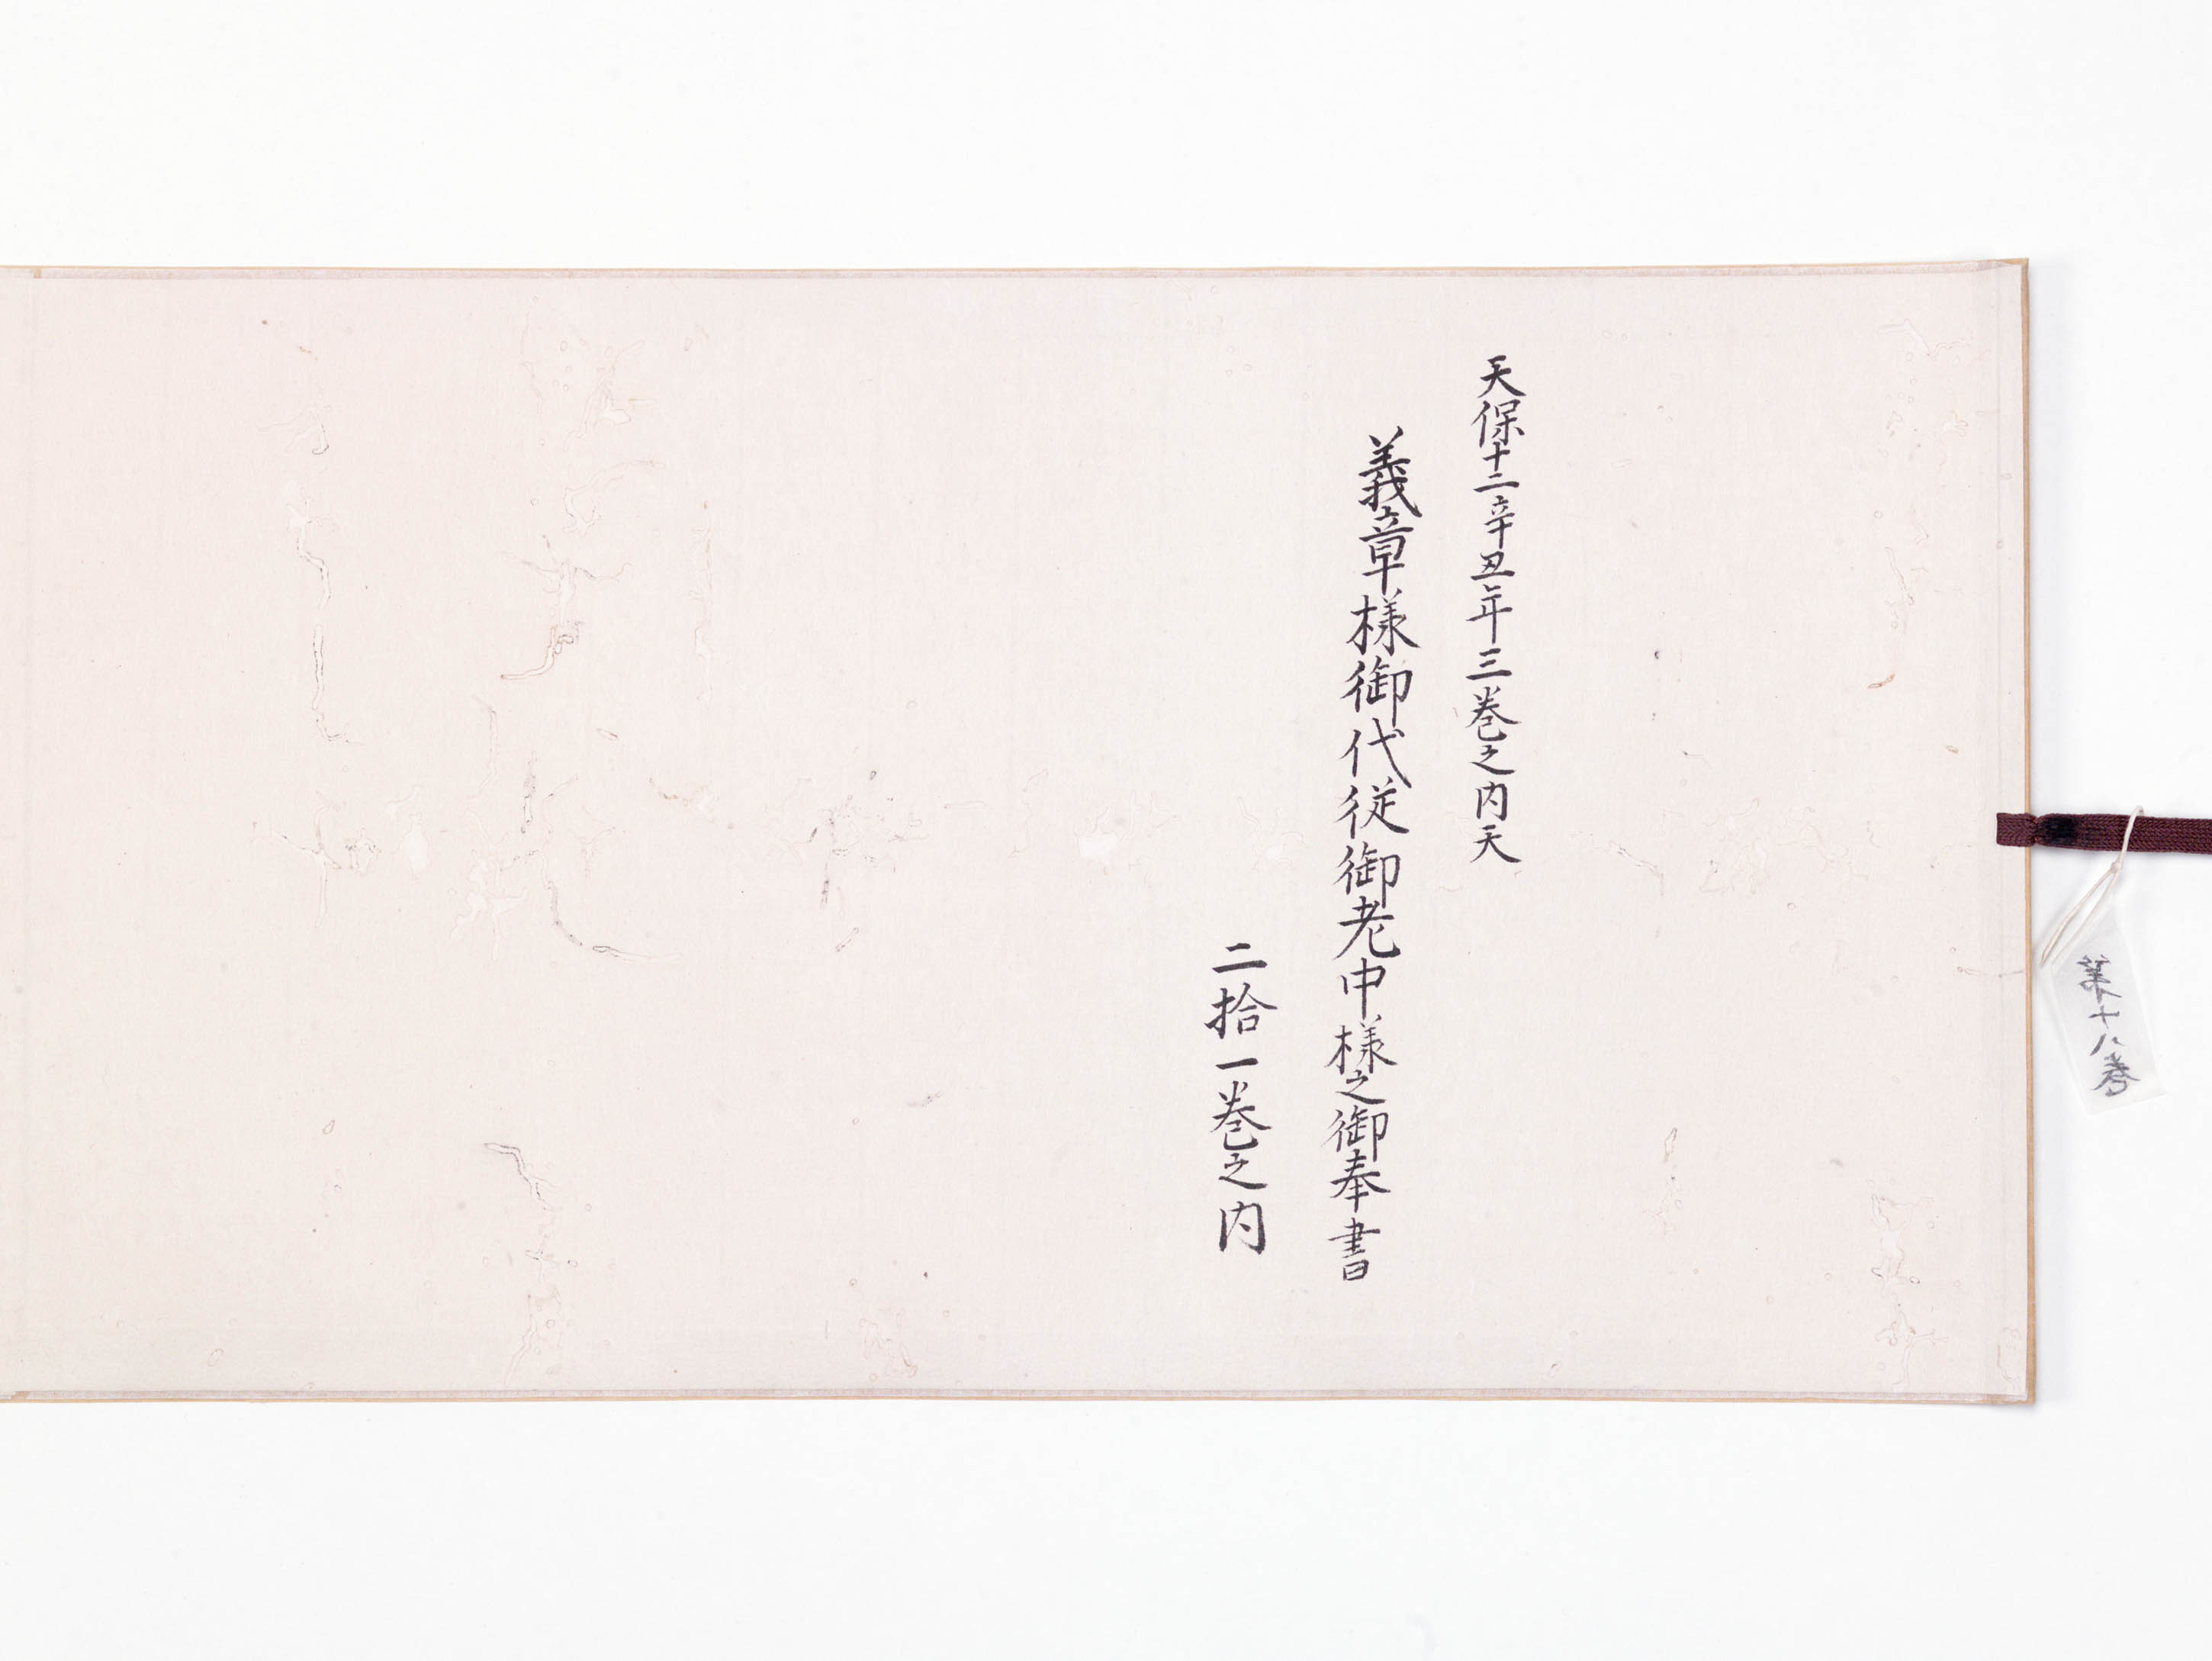 天保十二辛丑年三巻之内天
義章様御代従御老中様之御奉書
二拾一巻之内
第十八巻